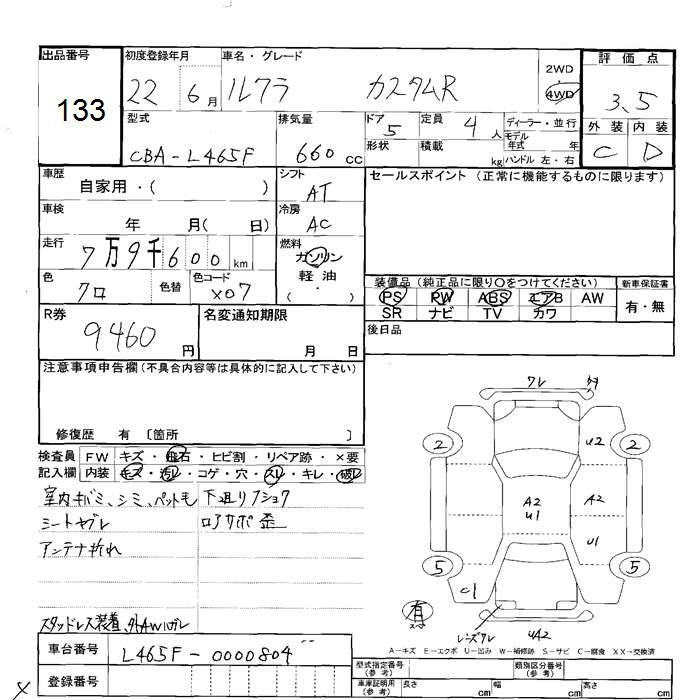 出品番号 初度登録年月 車名・グレード 2WD 評価点
133 22 6月 ルクラ カスタムR 4WD 3.5
型式 排気量 ドア 定員 ディーラー・並行 外装 内装
CBA-L465F 660cc 5 4人 モデル年式 年 C D
形状 積載 kg ハンドル 左・右
車歴 シフト セールスポイント (正常に機能するものに限ります)
自家用・( ) AT
車検 冷房
年 月( 日) AC
走行 燃料
7万9千600km ガソリン
軽油
・( )
色 色替 色コード 装備品 (純正品に限り○をつけてください) 新車保証書
クロ X07 PS RW ABS エアB AW 有・無
SR ナビ TV カワ
R券 名変通知期限 後日品
9460円 月 日
注意事項申告欄(不具合内容等は具体的に記入して下さい)
修復歴 有 〔箇所 〕
検査員 FW キズ・飛石・ヒビ割・リペア跡・×要
記入欄 内装 キズ・汚レ・コゲ・穴・スレ・キレ・破レ
室内キバミ、シミ、ペット毛 下廻りフショク
シートヤブレ
アンテナ折れ
スタッドレス装着、外AWハガレ
ワレ
2 U2 2
A2 U1 A2
U1
5 5
C1
有
レンズワレ UA2
A-キズ E-エクボ U-凹み W-補修跡 S-サビ C-腐食 XX-交換済
車台番号 L465F-0000804
登録番号
型式指定番号(参考) 類別区分番号(参考)
車庫証明用(参考) 長さ cm 幅 cm 高さ cm